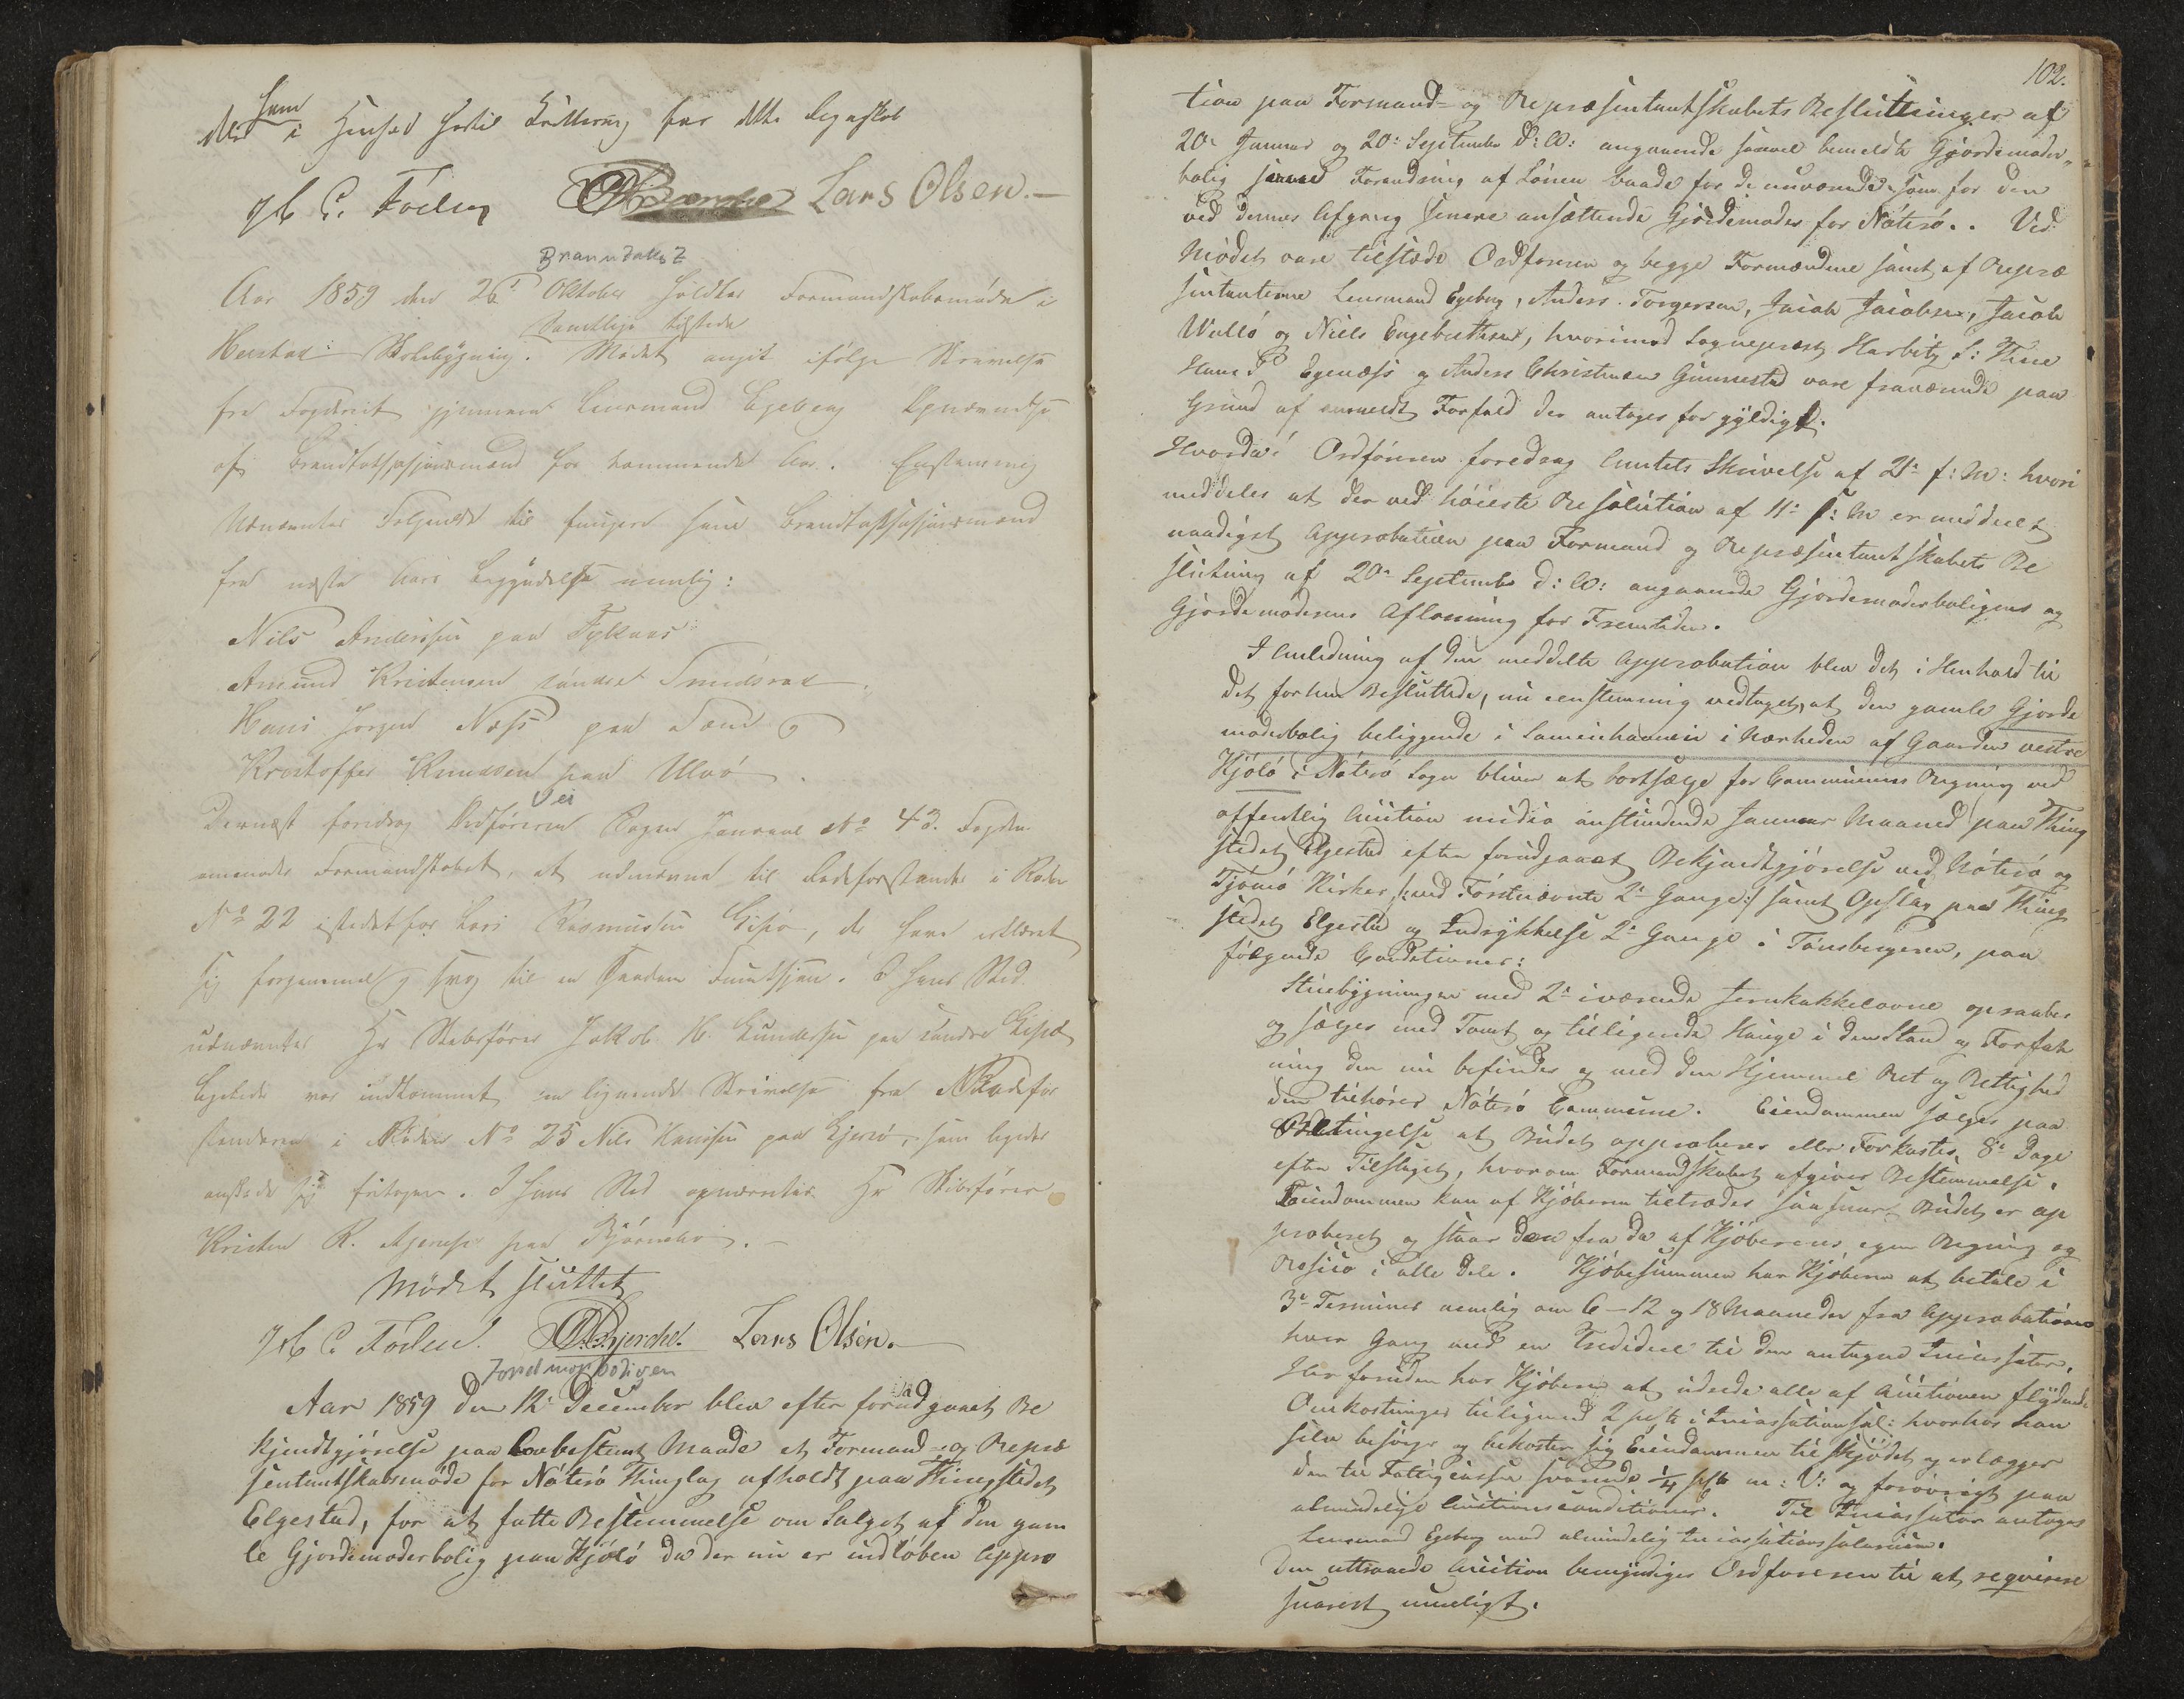 ham
i Henhold hertil Qvittering for dette Regnskab
H. C. Foÿen Lars Olsen.—
Branntakst
Aar 1859 den 26de Oktober holdtes Formandskabsmöde i
Samtlige tilstede
Herstad Skolebygning. Mödet angik ifölge Skrivelse
fra Fogderiet gjennem Lensmand Egeberg Opnævnelse
af Brandtaxsasjonsmænd for kommende Aar. Enstemmig
udnævntes Følgende til fungere som Brandtaxsasjonsmænd
fra næste Aars Begyndelse nemlig:
Nils Anderssen paa
Amund Kristensen söndre Smidsrød
Hans Jørgen Næss paa
Kristoffer Knudsen paa
Vei
Dernæst foredrog Ordföreren Sagen Journal No 43. Fogden
anmoder Formandskabet, at udnævne til Rodeforstander i Roden
No 22 istedetfor Lars Rasmussen, der have erklæret
sig og svag til en saadan Funktsjon. I hans Sted
udnævntes Hr Skibsförer Jakob H. paa söndre
Ligeledes var indkommet en lignende Skrivelse fra Rodefor
standeren i Roden No 25 Nils Hanssen paa, som ligeledes
önskede sig fritagen. I hans Sted opnævntes Hr Skibsförer
Kristen R. paa Bjørnebo.—
Mödet sluttet
H. C. Foÿen. O. Bjerche. Lars Olsen.
Jordmorboligen
Aar 1859 den 12te December blev efter forudgaaet Be
kjendtgjörelse paa lovbestemt Maade et Formand- og Repræ
sentantskabsmöde for Nöterö Thinglag afholdt paa Thingstedet
Elgestad, for at fatte Bestemmelse om Salget af den gam
le Gjordemoderbolig paa Kjölö da der nu er indlöben Appro
102.
tion paa Formand- og Repræsentantskabets Beslutninger af
20de Januar og 20de September d: A: angaaende saavel bemeldte Gjordemoder-
bolig som Forandring af Lönen baade for de nuværende som for den
ved dennes Afgang senere ansættende Gjordemoder for Nöterö. Ved
Mödet vare tilstæde Ordföreren og begge Formændene samt af Repræ
sentanterne Lensmand Egeberg, Anders Torgersen, Jacob Jacobsen, Jacob
Wullö og Niels Engebrethsen, hvorimod Sogneprest Harbitz, S: Thue
Hans P Egenæss og Anders Christensen Gunnestad vare fraværende paa
Grund af anmeldt Forfald der antoges for gyldigt.
Hvorda: Ordföreren foredrog Amtets Skrivelse af 21de f: M: hvori
meddeles at der ved höieste Resolution af 11te f: M er meddeelt
naadigst Approbation paa Formand og Repræsentantskabets Be
slutning af 20de September d: A: angaaende Gjordemoderboligens og
Gjordemoderens Aflönning for Fremtiden.
I Anledning af den meddelte Approbation blev det i Henhold til
det forhen Besluttede, nu eenstemmig vedtaget, at den gamle Gjorde
moderbolig beliggende i i Nærheden af Gaarden vestre
Kjölö i Nöterö Sogn bliver at bortsælge for Communens Regning ved
offentlig Auction medio anstundende Januar Maaned paa Thing
stedet Elgestad efter forudgaaet Bekjendtgjörelse ved Nöterö og
Tjömö Kirker, (ved Förstnævnte 2de Gange:) samt Opslag paa Thing
stedet Elgestad og Indrykkelse 2de Gange i Tönsbergeren, paa
fölgende Conditioner:
Stuebygningen med 2de iværende Jernkakkelovne opraabes
og sælges med Tomt og tilliggende Hauge i den Stand og Forfat
ning den nu befindes og med den Hjemmel Ret og Rettighed
den tilhörer Nöterö Commune. Eiendommen sælges paa
Betingelse at Budet approberes eller Forkastes 8te Dage
efter Tilslaget, hvorom Formandskabet afgiver Bestemmelse.
Eiendommen kan af Kjöberen tiltrædes saasnart Budet er ap
proberet og staar den fra da af Kjöberens egen Regning og
Resico i alle Dele. Kjöbesummen har Kjöberen at betale i
3de Terminer nemlig om 6—12 og 18 Maaneder fra Approbationen
hver Gang med en Trediedeel til den antagne Incassator.
Her foruden har Kjöberen at udrede alle af Auctionen flydende
Omkostninger tilligemed 2 pCt i Incassationssal: hvorhos han
selv besörger og bekoster sig Eiendommen tilskjödet og erlægger
den til Fattigcassen svarende 1/4 pCt m: V: og forövrigt paa
almindelige Auctionsconditioner. Til Incassator antoges
Lensmand Egeberg mod almindelig Incassationssalarium.
Den attraaede Auction bemyndiges Ordföreren til at reqvirere
snarest mueligt.